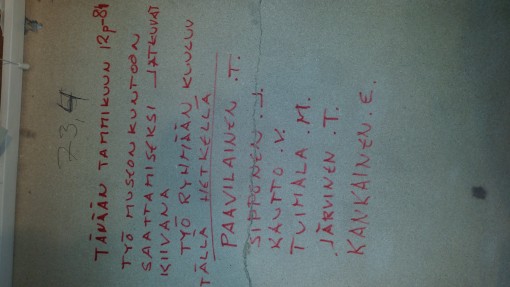 73,4
TÄNÄÄN TAMMIKUUN 12p-84
TYÖ MUSEON KUNTOON
SAATTAMISEKSI JATKUVAT
KIIVAINA
TYÖ RYHMÄÄN KUULUU
TÄLLÄ HETKELLÄ
PAAVILAINEN .T.
SIPPONEN .J.
KAUTTO .V.
TUIMALA .M.
JÄRVINEN .T.
KANKAINEN .E.